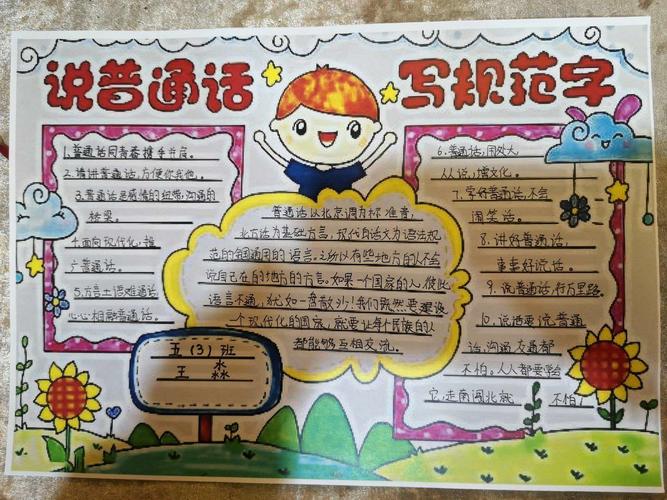 说普通话 写规范字
1.普通话同青春携手并肩。
2.请讲普通话,方便你我他。
3.普通话是感情的纽带,沟通的
桥梁。
4.面向现代化,推
广普通话。
5.方言土语难通话
心心相融普通话。
普通话以北京调为标准音,
北方话为基础方言,现代白话文为语法规
范的全国通用的语言。所以有些地方的人不会
说自己在的地方的方言。如果一个国家的人,彼此
语言不通,就如一盘散沙!我们既然要建设
一个现代化的国家,就要让每个民族的人
都能够互相交流。
五(3)班
王淼
6.普通话,用处大
人人说,增文化。
7.学好普通话,不会
闹笑话。
8.讲好普通话,
事事好说话。
9.说普通话,行万里路。
10.说话要说普通
话,沟通交通都
不怕。人人都要学会
它,走南闯北就 不怕!